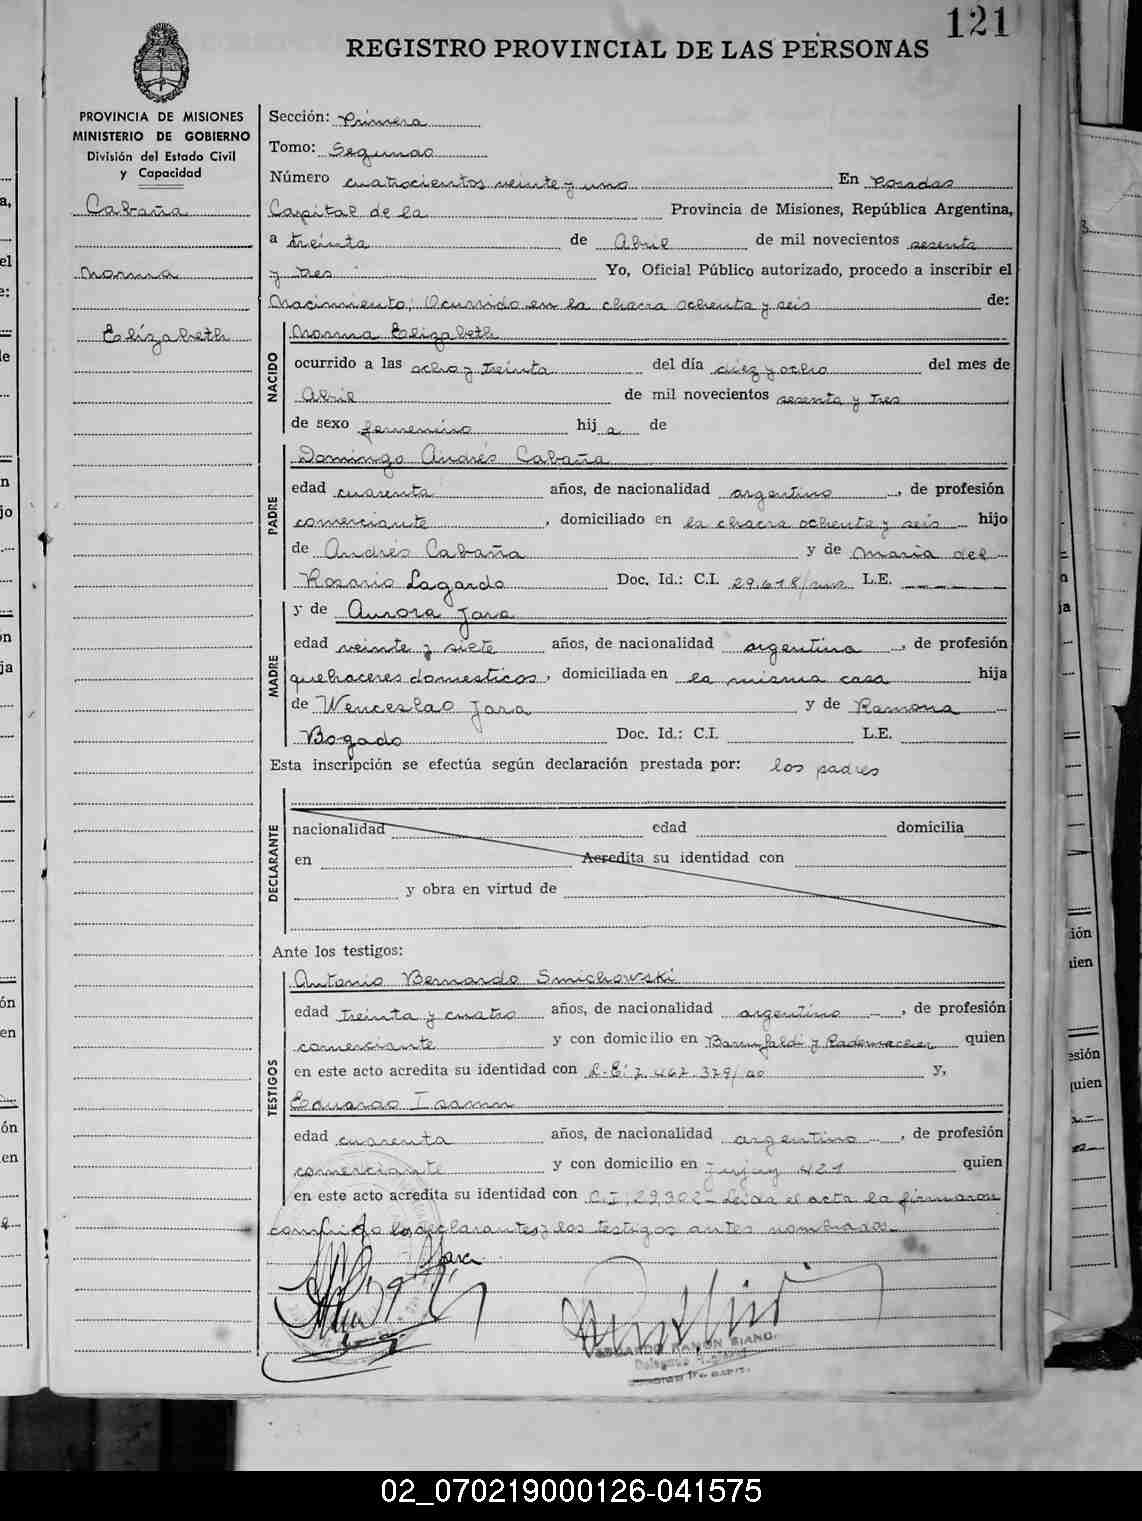 121
REGISTRO PROVINCIAL DE LAS PERSONAS
PROVINCIA DE MISIONES
MINISTERIO DE GOBIERNO
División del Estado Civil
y Capacidad
Cabaña
Norma
Elízabeth
Sección: Primera
Tomo: Segundo
Número cuatrocientos veinte y uno En Posadas
Capital de la Provincia de Misiones, República Argentina,
a treinta de Abril de mil novecientos sesenta
y tres Yo, Oficial Público autorizado, procedo a inscribir el
Nacimiento; Ocurrido en la chacra ochenta y seis de:
NACIDO
Norma Elizabeth
ocurrido a las ocho y treinta del día diez y ocho del mes de
Abril de mil novecientos sesenta y tres
de sexo femenino hij a de
PADRE
Domingo Andrés Cabaña
edad cuarenta años, de nacionalidad argentino, de profesión
comerciante, domiciliado en la chacra ochenta y seis hijo
de Andres Cabaña y de Maria del
Rosario Lagardo Doc. Id.: C.I. 29.618/mis L.E.
MADRE
y de Aurora Jara
edad veinte y siete años, de nacionalidad argentina, de profesión
quehaceres domesticos, domiciliada en la misma casa hija
de Wenceslao Jara y de Ramona
Bogado Doc. Id.: C.I. L.E.
Esta inscripción se efectúa según declaración prestada por: los padres
DECLARANTE
nacionalidad edad domicilia
en Acredita su identidad con
y obra en virtud de
Ante los testigos:
TESTIGOS
Antonio Bernardo Smichowski
edad treinta y cuatro años, de nacionalidad argentino, de profesión
comerciante y con domicilio en Barrufaldi y Rademacher quien
en este acto acredita su identidad con L.E: 7.467.379/ y,
Eduardo
edad cuarenta años, de nacionalidad argentino, de profesión
comerciante y con domicilio en Jujuy 421 quien
en este acto acredita su identidad con C.I, 29,302 - Leida el acta la firmaron
conmigo los declarantes y los testigos antes nombrados.
Jara
RAMON
02_070219000126-041575